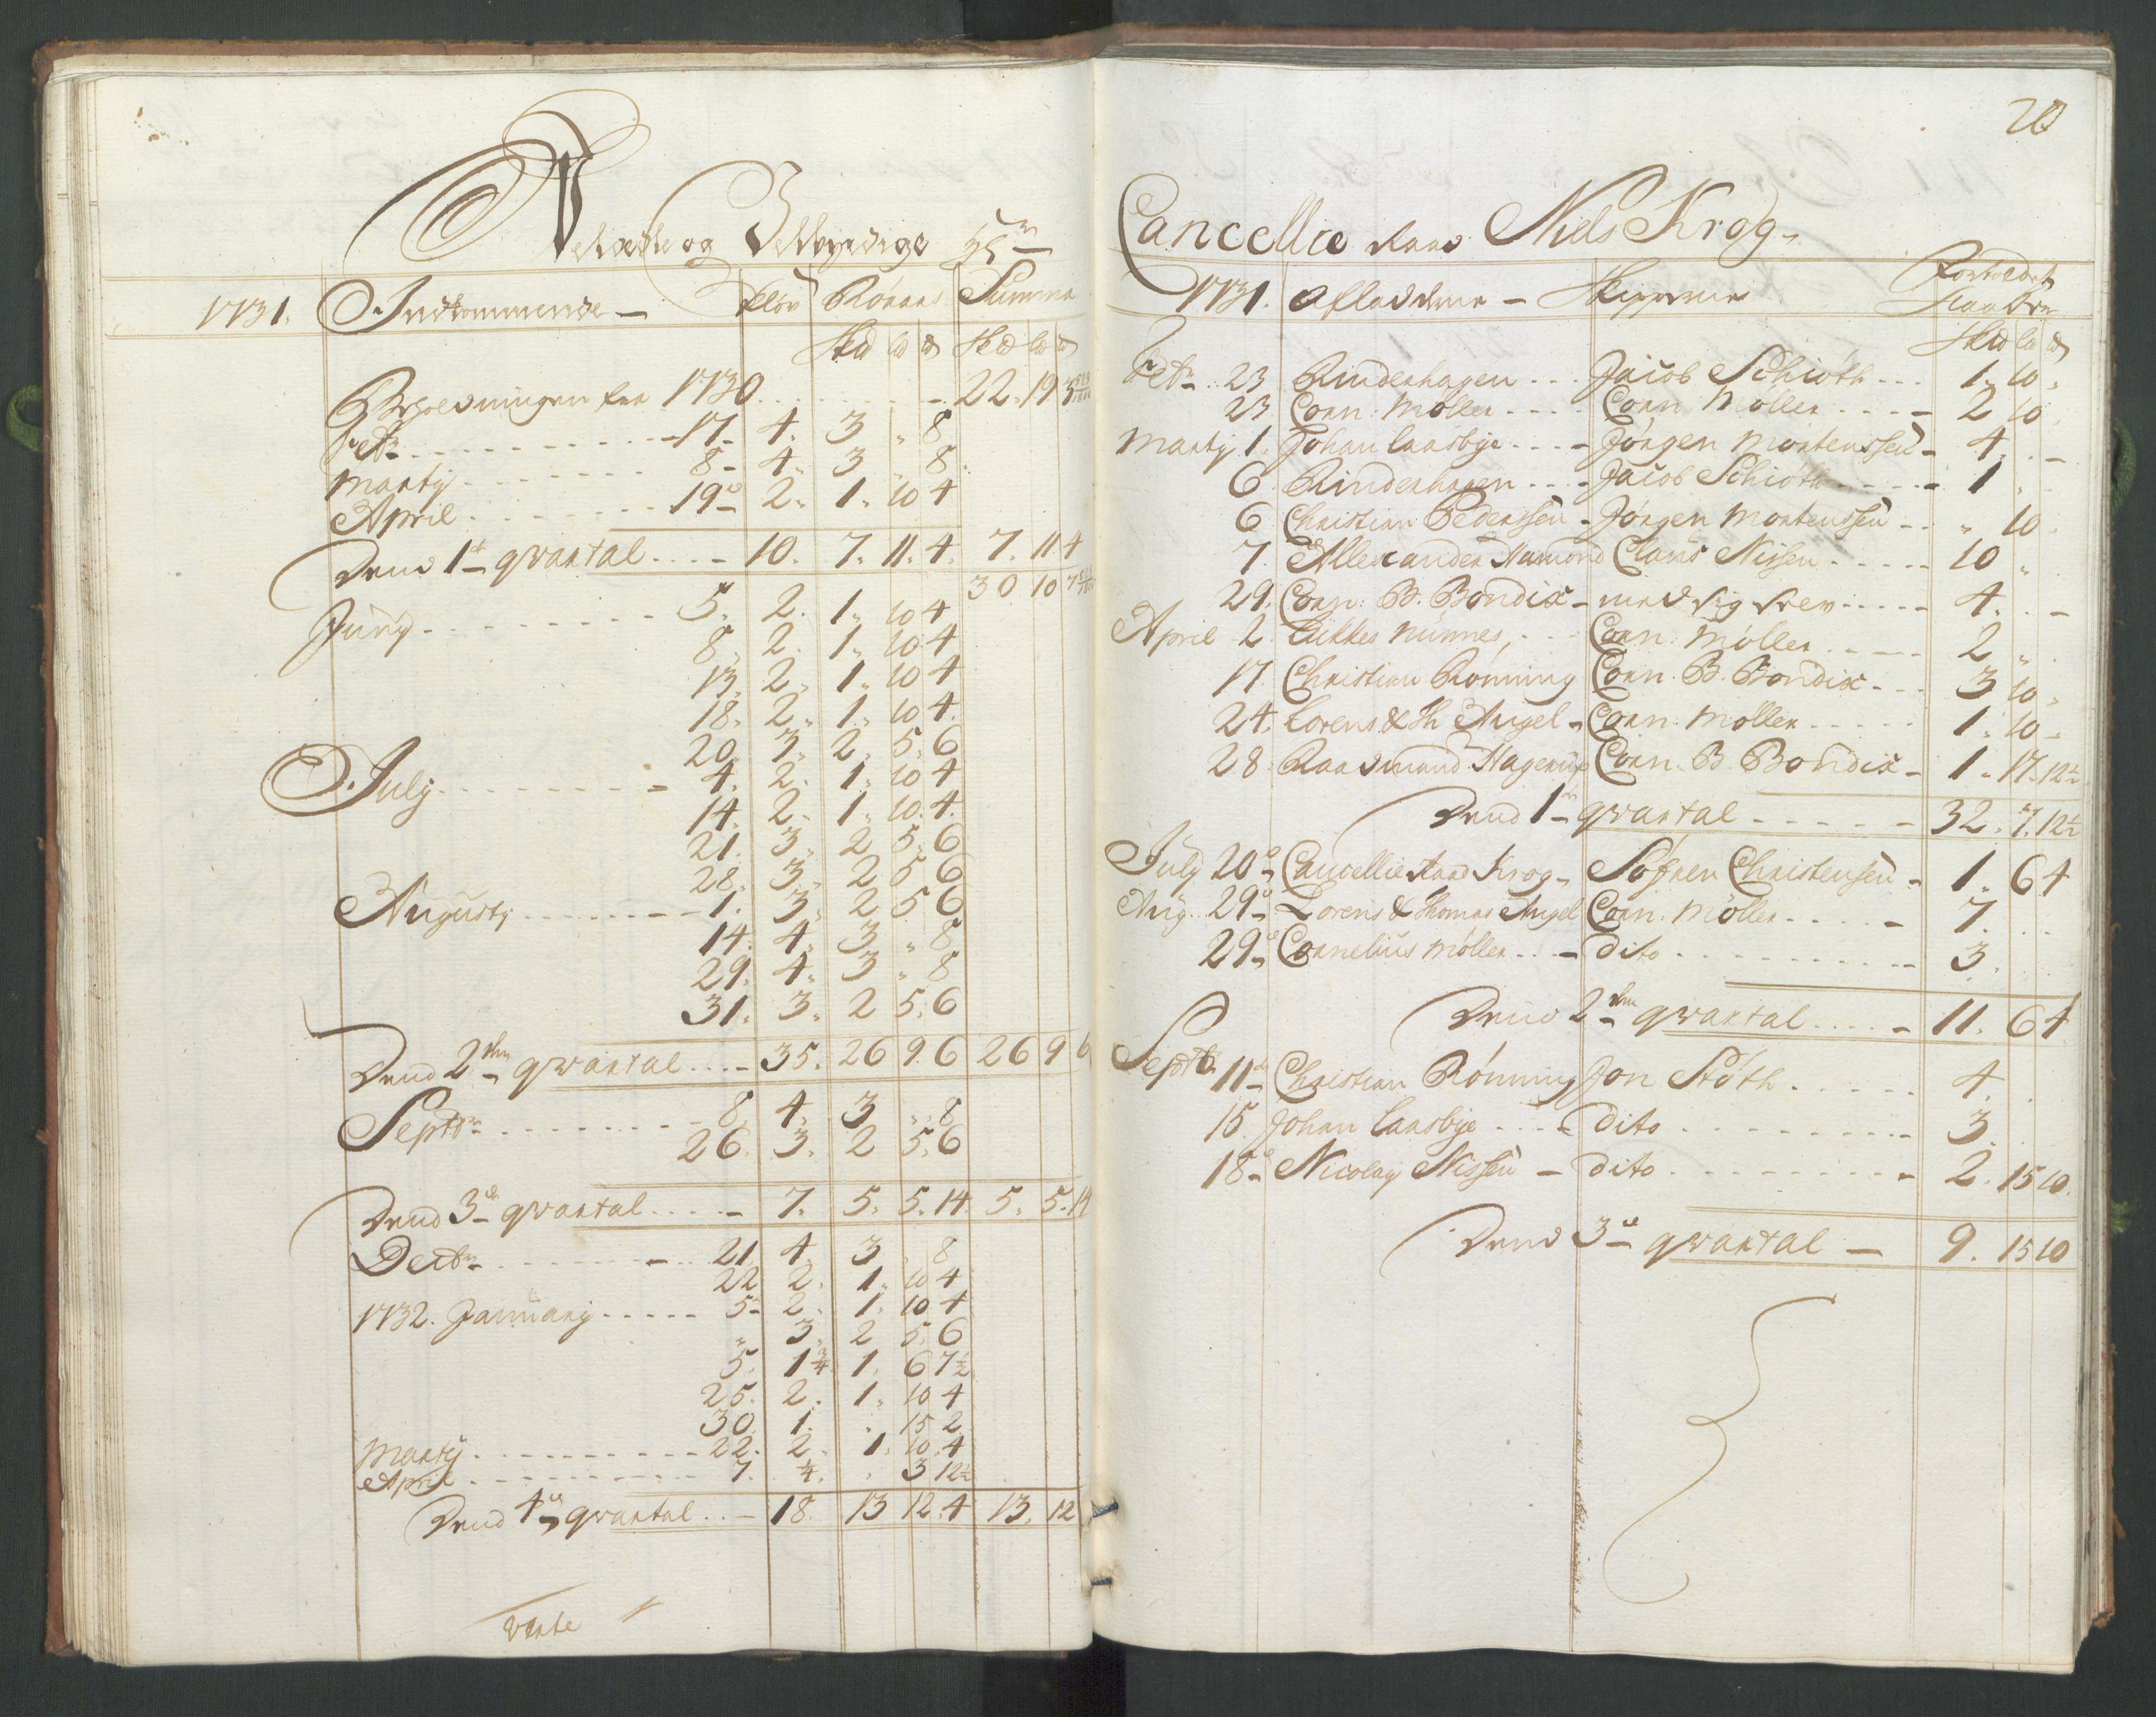 Velædle og Velbyrdige Hr
1731. Indkommende — Kløv Röraas Summa
Skd lð ℔ Skd lð ℔
Beholdningen fra 1730 . . . 22. 19
Febr 17 4. 3 " 8
Marty 8 4. 3 " 8
April 19 2. 1. 10 4
Dend 1te qvartal 10. 7. 11. 4. 7. 11 4
30 10
Juny 5. 2. 1. 10 4
8. 2. 1. 10 4
13. 2. 1. 10 4
18. 2. 1. 10 4
20. 3. 2. 5. 6
July 4. 2. 1. 10 4
14. 2. 1. 10. 4.
21. 3. 2 5. 6
28. 3. 2 5 6
Augusty 1. 3. 2 5 6
14. 4. 3 " 8
29. 4. 3 " 8
31. 3. 2 5. 6
Dend 2den qvartal 35. 26 9. 6 26 9 6
Septbr 8. 4. 3 " 8
26. 3. 2 5. 6
Dend 3de qvartal 7. 5. 5. 14. 5. 5. 14
Decbr 21 4 3 8
22 2. 1. 10 4
1732. January 5 2. 1. 10 4
" 3. 2 5. 6
5. 1 3/4 1. 6 7 1/2
25. 2. 1. 10 4
30. 1. . 15 2
Marty 22. 2. 1. 10. 4
April 7. 1/4. . 3 12 1/2
Dend 4de qvartal 18. 13 12. 4 13. 12
Verte
20
Cancellie Raad Niels Krog
1731. Afladderne — Skipperne Forholdets Kaabber
Skd lð ℔
Febr 23 Rinderhagen Jacob Schiøth 1. 10.
23. Corn: Møller Corn Møller 2 10
Marty 1. Johan Caasbye Jörgen Mortenssen 4. . —
6. Rinderhagen Jacob Schiøth 1 "
6 Christian Pederssen Jörgen Mortenssen " 10.
7. Allexander Hamond Claus Nissen 10 "
29. Corn: B. Bondix med sig sielv 4. . —
April 2. Lükkes Münnes, Corn: Møller 2 "
17. Christian Rönning Corn. B. Bondix 3 10.
24. Lorens & Th Angel Corn: Møller 1. 10
28. Raadmand Hagerup Corn. B. Bondix 1. 17. 12 1/2
Dend 1te qvartal 32. 7. 12 1/2
July 20de Cancellie Raad Krog Søfren Christensen 1. 6 4
Aug. 29de Lorens & Thomas Angel Corn. Møller 7. . .
29de Cornelius Møller dito 3.
Dend 2den qvartal 11. 6 4
Septbr 11te Christian Rönning Jon Støth 4.
15. Johan Caasbye dito 3.
18de Nicolay Nissen dito 2. 15 10.
Dend 3de qvartal — 9. 15 10